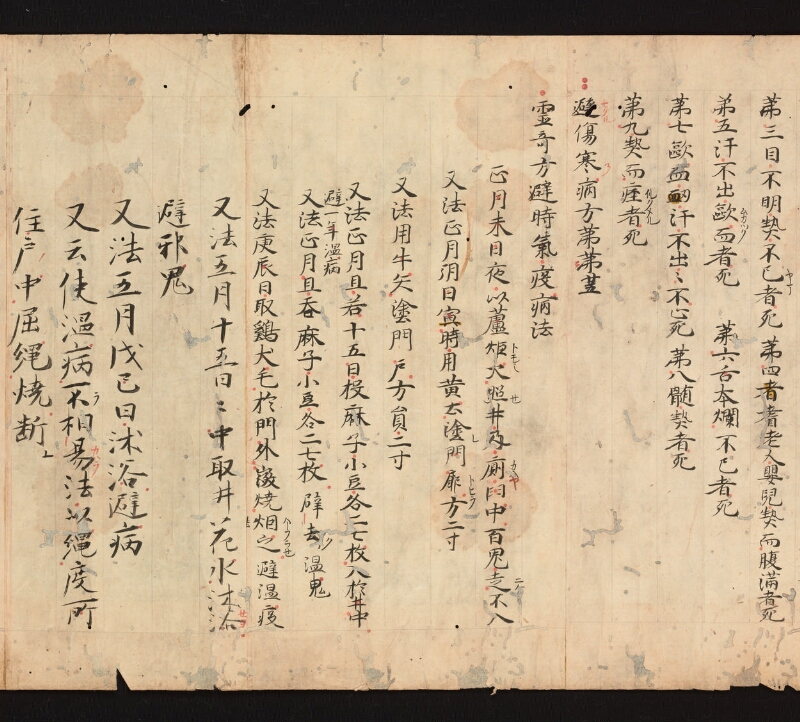 第三目不明熱不已者死 第四者耆老人嬰兒熱而腹滿者死
第五汗不出歐而者死 第六舌本爛不已者死
第七歐血衂汗不出〻不心死 第八髄熱者死
第九熱而痙者死
避傷寒病方第䓁
靈奇方避時氣疫病法
正月未日夜以蘆炬火照井及廁臼中百鬼走不入
又法正月朔日寅時用黄土塗門扉方二寸
又法用牛矢塗門戸方員二寸
又法正月旦若十五日投麻子小豆各二七枚入於井中
避一年温病
又法正月旦吞麻子小豆各二七枚辟去温鬼
又法庚辰日取鷄犬毛於門外嶶焼烟之避温疫
又法五月十五日〻中取井花水沐浴
避邪鬼
又法五月戊己日沐浴避病
又云使温病不相昜法以繩度所
住戸中屈繩焼断